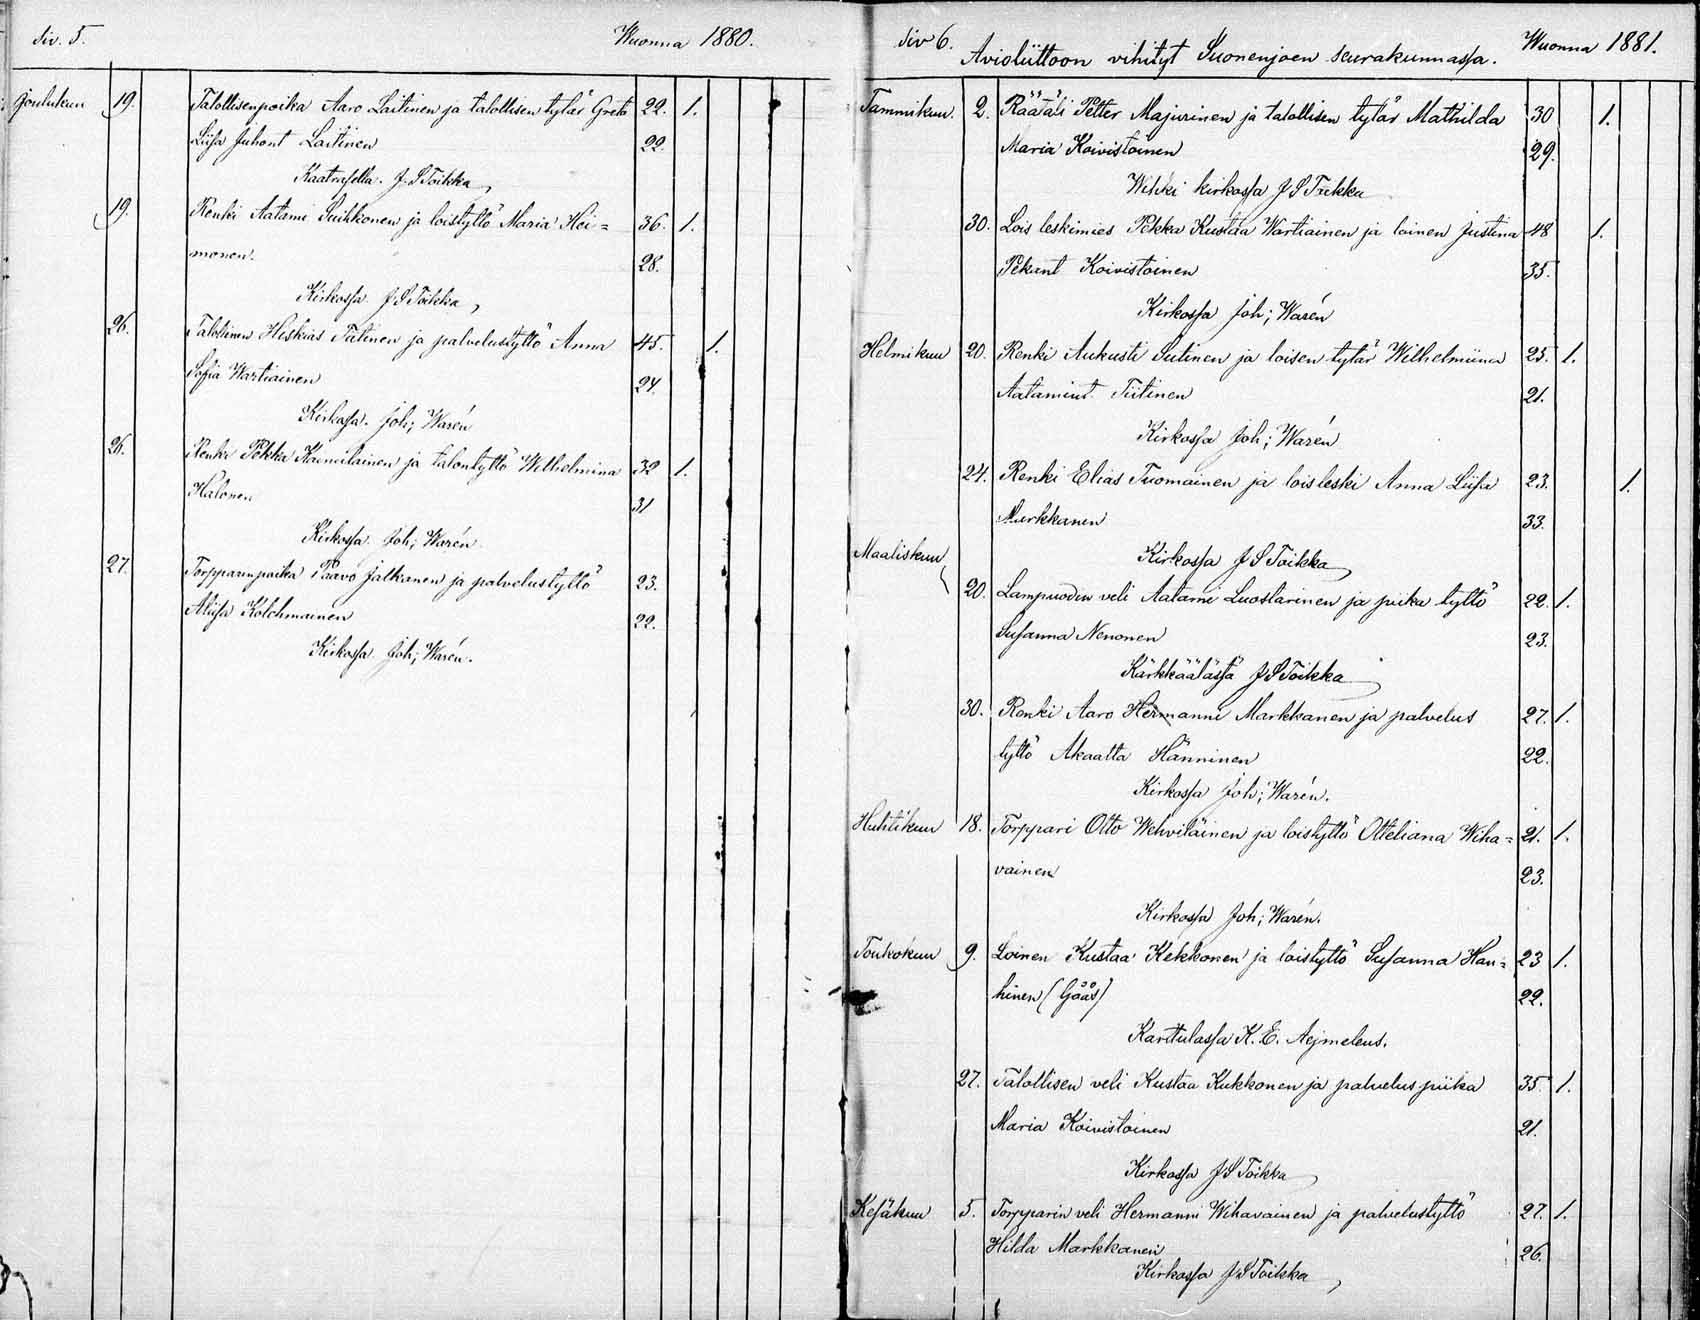 Siv. 5. Wuonna 1880.
Joulukuu 19. Talollisenpoika Aaro Laitinen ja talollisen tytär Greta 22. 1.
Liisa Juhont. Laitinen 22.
Kaatrasella. J S Toikka
19. Renki Aatami Suihkonen ja loistyttö Maria Hei= 36. 1.
monen. 28.
Kirkossa. J S Toikka
26. Talollinen Hiskias Tiitinen ja palvelustyttö Anna 45. 1.
Sofia Wartiainen 24.
Kirkossa. Joh; Warén
26. Renki Pekka ja talontyttö Wilhelmina 32 1.
Halonen 31
Kirkossa. Joh; Warén.
27. Torpparinpoika Paavo Jalkanen ja palvelustyttö 23.
Aliisa Kolehmainen 22.
Kirkossa. Joh; Warén.
Siv 6. Wuonna 1881.
Avioliittoon vihityt Suonenjoen seurakunnassa.
Tammikuu. 2. Räätäli Petter Majurinen ja talollisen tytär Mathilda 30 1.
Maria Koivistoinen 29.
Wihki kirkossa J S Toikka
30. Lois leskimies Pekka Kustaa Wartiainen ja loinen Justina 48 1.
Pekant. Koivistoinen 35.
Kirkossa Joh; Warén
Helmikuu 20. Renki Aukusti Sutinen ja loisen tytär Wilhelmiina 25. 1.
Aatamint. Tiitinen 21.
Kirkossa Joh; Warén
24. Renki Elias Tuomainen ja loisleski Anna Liisa 23. 1.
Markkanen 33.
Maaliskuu Kirkossa J S Toikka
20. Lampuodin veli Aatami Luostarinen ja piika tyttö 22. 1.
Susanna Nenonen 23.
Kärkkäälässä J S Toikka
30. Renki Aaro Hermanni Markkanen ja palvelus 27. 1.
tyttö Akaatta Hänninen 22.
Kirkossa Joh; Warén.
Huhtikuu 18. Torppari Otto Wehviläinen ja loistyttö Otteliana Wiha= 21. 1.
vainen 23.
Kirkossa Joh; Warén.
Toukokuu 9. Loinen Kustaa Kekkonen ja loistyttö Susanna Han= 23 1.
hinen (Gåås) 22.
Karttulassa K. E. Aejmeleus.
27. Talollisen veli Kustaa Kukkonen ja palveluspiika 35. 1.
Maria Koivistoinen 21.
Kirkossa J S Toikka
Kesäkuu 5. Torpparin veli Hermanni Wihavainen ja palvelustyttö 27. 1.
Hilda Markkanen 26.
Kirkossa J S Toikka